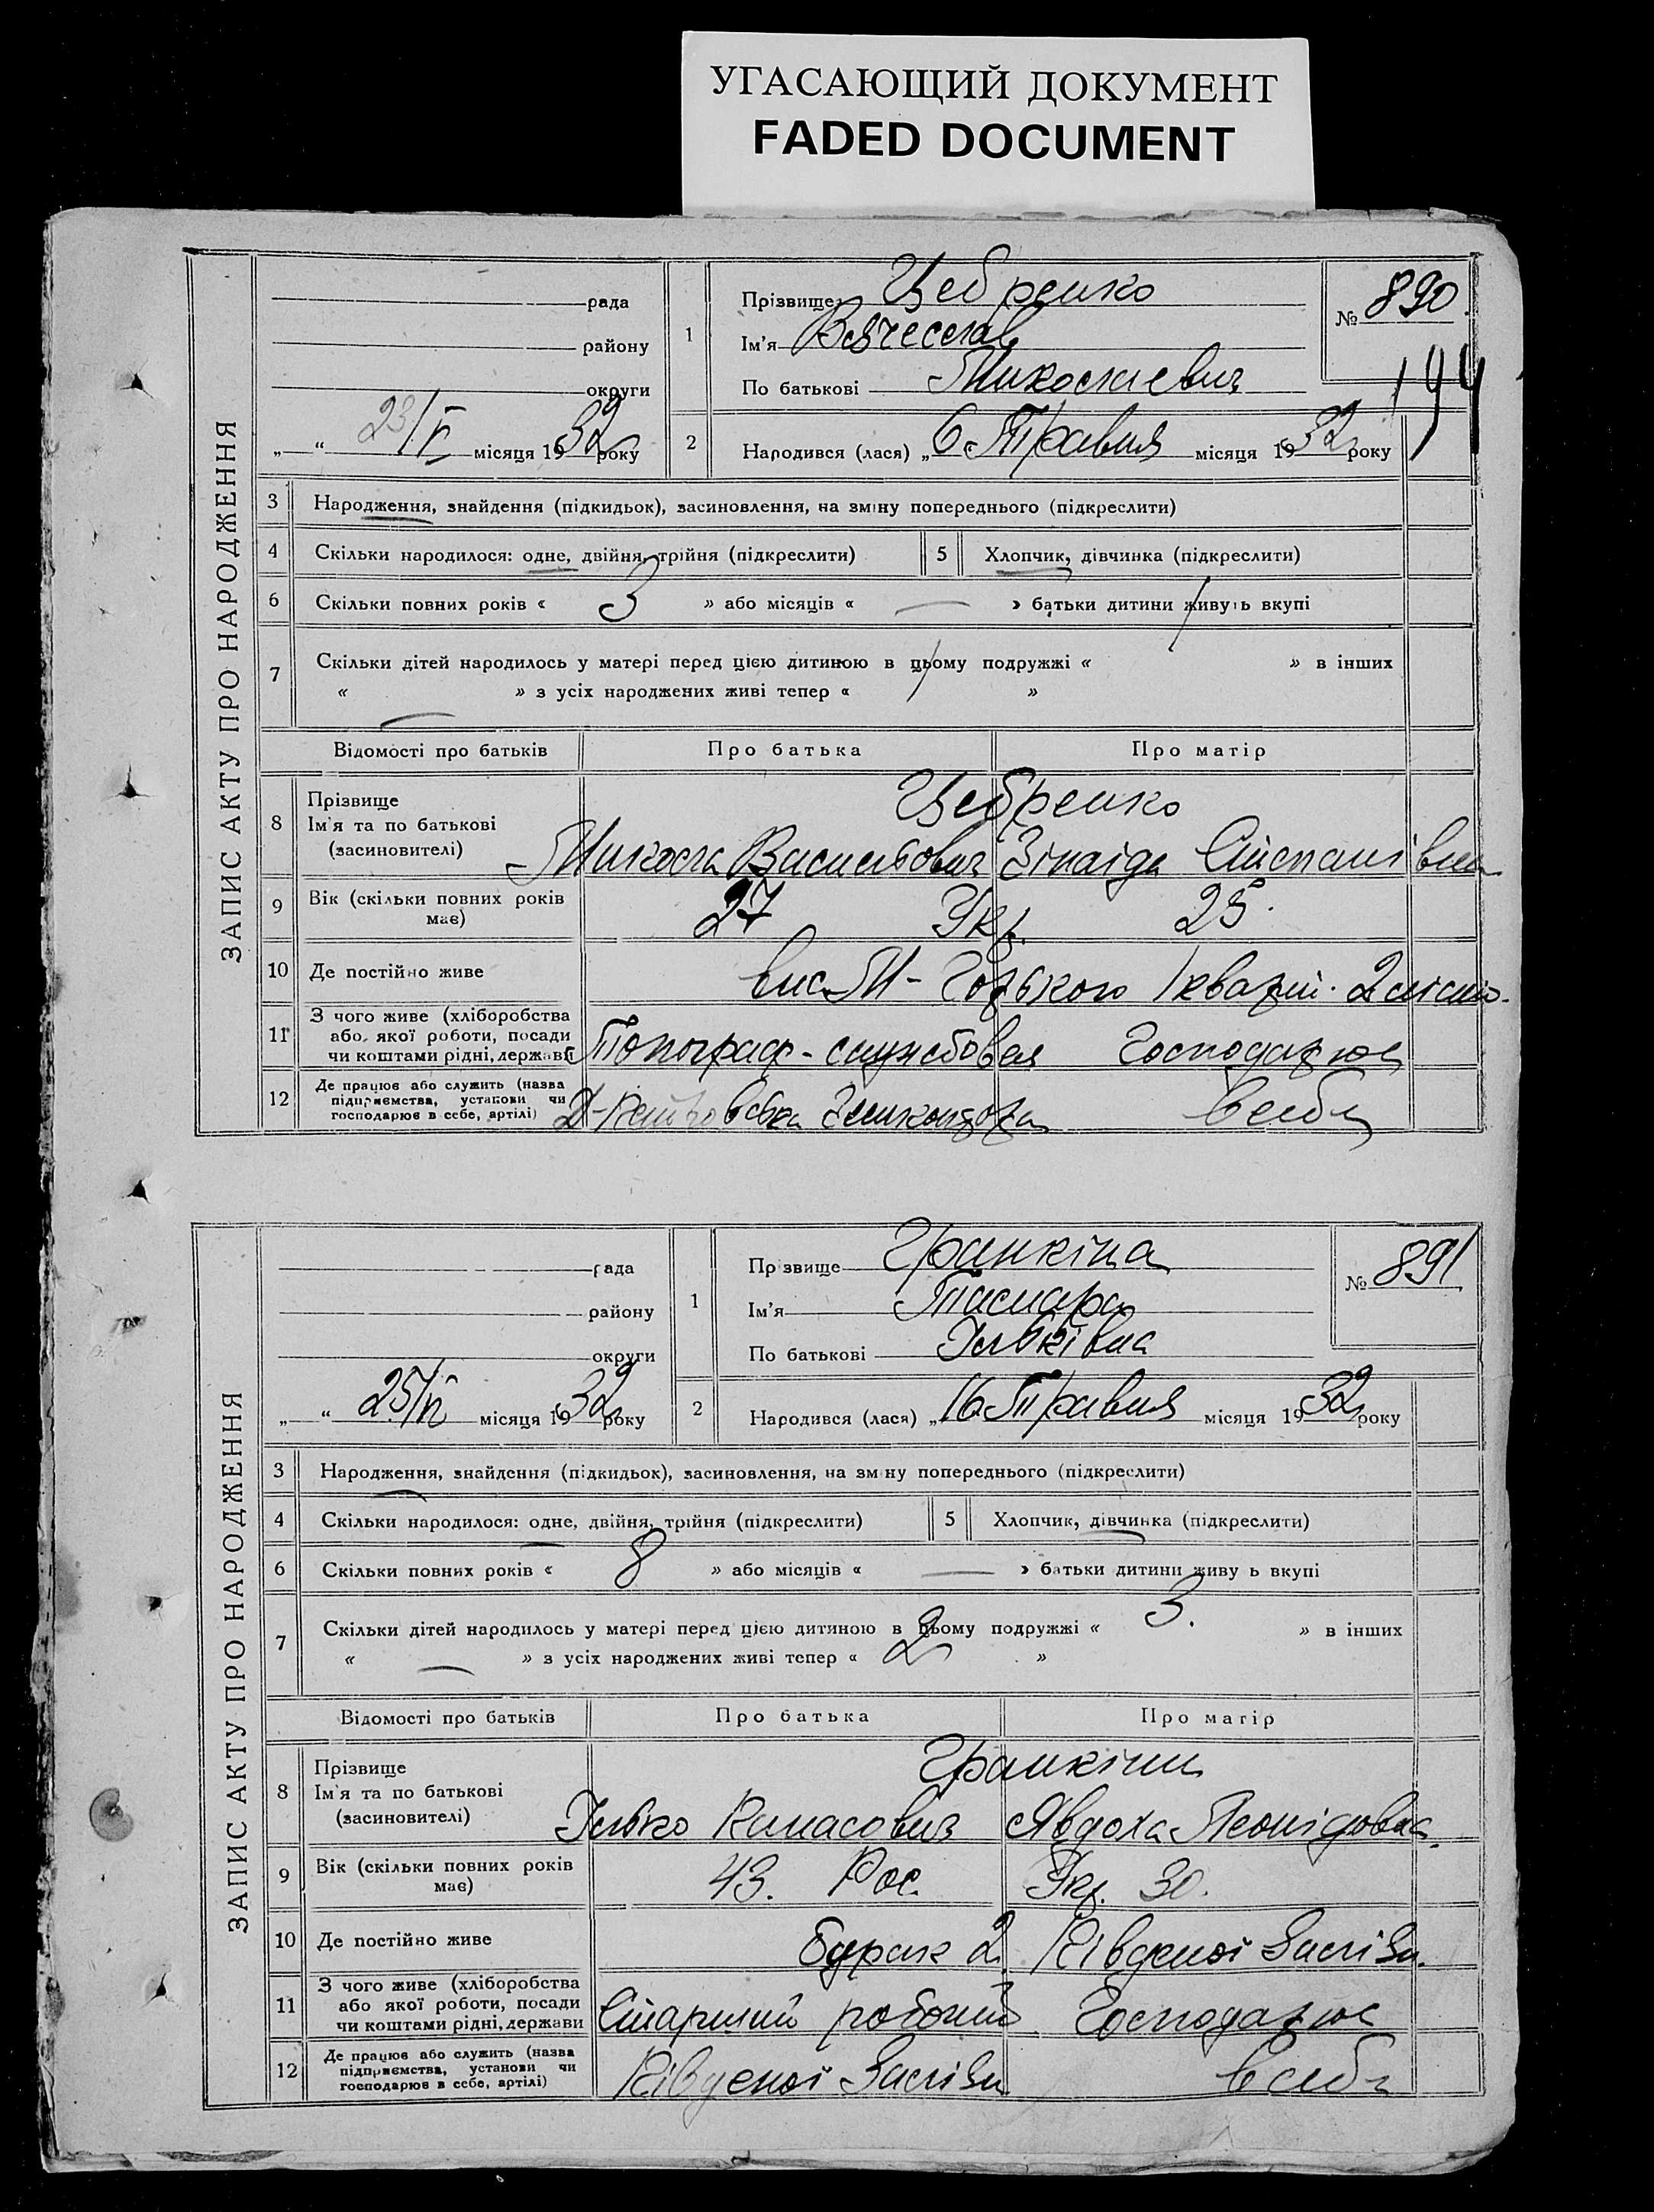 УГАСАЮЩИЙ ДОКУМЕНТ
FADED DOCUMENT
ЗАПИС АКТУ ПРО НАРОДЖЕННЯ
рада
району
округи
„ “ 23/V місяця 1932 року
1 Прізвище Цебренко
Ім'я Вячеслав
По батькові Миколаєвич
№ 890
194
2 Народився (лася) „6 Травня місяця 1932 року
3 Народження, знайдення (підкидьок), засиновлення, на зміну попереднього (підкреслити)
4 Скільки народилося: одне, двійня, трійня (підкреслити) 5 Хлопчик, дівчинка (підкреслити)
6 Скільки повних років « 3 » або місяців « — » батьки дитини живуть вкупі
7 Скільки дітей народилось у матері перед цією дитиною в цьому подружжі « 1 » в інших
« — » з усіх народжених живі тепер « 1 »
Відомості про батьків Про батька Про матір
8 Прізвище Цебренко
Ім'я та по батькові
(засиновителі) Микола Васильович Зінаїда Степанівна
9 Вік (скільки повних років має) 27 Укр. 25.
10 Де постійно живе вис. М-Горького 1 кварт.
11 З чого живе (хліборобства
або якої роботи, посади
чи коштами рідні, держави Топограф-службовая Господарює
12 Де працює або служить (назва
підприємства, установи чи
господарює в себе, артілі) в себе
ЗАПИС АКТУ ПРО НАРОДЖЕННЯ
рада
району
округи
„ “ 25/V місяця 1932 року
1 Прізвище Гранкіна
Ім'я Тамара
По батькові Ільківна
№ 891
2 Народився (лася) „16 Травня місяця 1932 року
3 Народження, знайдення (підкидьок), засиновлення, на зміну попереднього (підкреслити)
4 Скільки народилося: одне, двійня, трійня (підкреслити) 5 Хлопчик, дівчинка (підкреслити)
6 Скільки повних років « 8 » або місяців « — » батьки дитини живуть вкупі
7 Скільки дітей народилось у матері перед цією дитиною в цьому подружжі « 3. » в інших
« — » з усіх народжених живі тепер « 2 »
Відомості про батьків Про батька Про матір
8 Прізвище Гранкіни
Ім'я та по батькові
(засиновителі) Ілько Явдоха Леонідовна
9 Вік (скільки повних років має) 43. Рос. Укр. 30.
10 Де постійно живе барак 2 Південої
11 З чого живе (хліборобства
або якої роботи, посади
чи коштами рідні, держави Старший робочий Господарює
12 Де працює або служить (назва
підприємства, установи чи
господарює в себе, артілі) Південої в себе